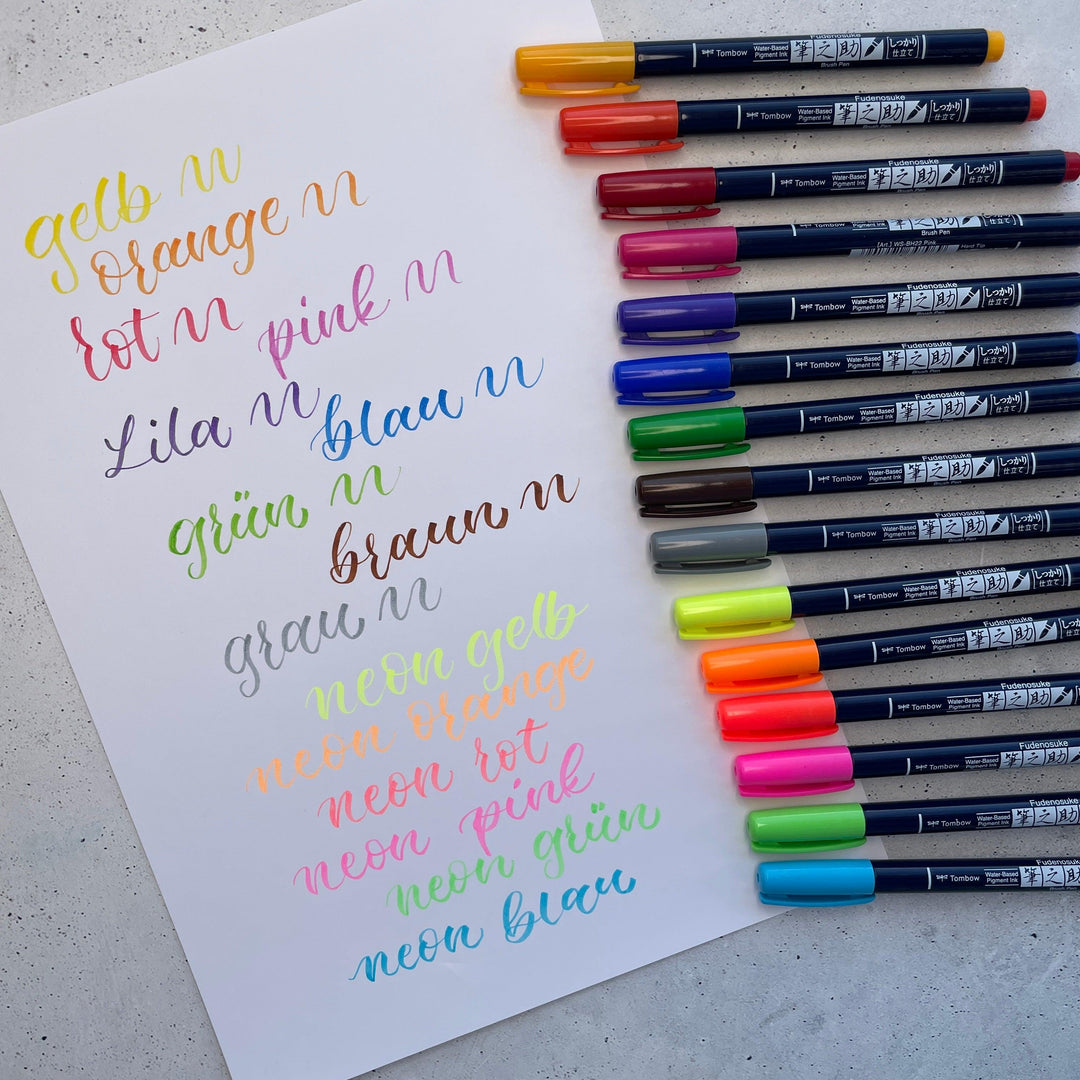 gelb
orange
rot
pink
Lila
blau
grün
braun
grau
neon gelb
neon orange
neon rot
neon pink
neon grün
neon blau
Tombow Water-Based Pigment Ink Fudenosuke 筆之助 しっかり仕立て Brush Pen
Tombow Water-Based Pigment Ink Fudenosuke 筆之助 しっかり仕立て Brush Pen
Tombow Water-Based Pigment Ink Fudenosuke 筆之助 しっかり仕立て Brush Pen
Tombow Water-Based Pigment Ink 筆之助 しっかり仕立て Brush Pen
[Art.] WS-BH22 Pink Hard Tip
Tombow Water-Based Pigment Ink Fudenosuke 筆之助 しっかり仕立て
Tombow Water-Based Pigment Ink Fudenosuke 筆之助 しっかり仕立て
Tombow Water-Based Pigment Ink Fudenosuke 筆之助 しっかり仕立て
Tombow Water-Based Pigment Ink Fudenosuke 筆之助 しっかり仕立て
Tombow Water-Based Pigment Ink Fudenosuke 筆之助 しっかり仕立て Brush Pen
Tombow Water-Based Pigment Ink Fudenosuke 筆之助 しっかり仕立て
Tombow Water-Based Pigment Ink Fudenosuke 筆之助
Tombow Water-Based Pigment Ink Fudenosuke 筆之助
Tombow Water-Based Pigment Ink Fudenosuke 筆之助
Tombow Water-Based Pigment Ink Fudenosuke 筆之助
Tombow Water-Based Pigment Ink Fudenosuke 筆之助